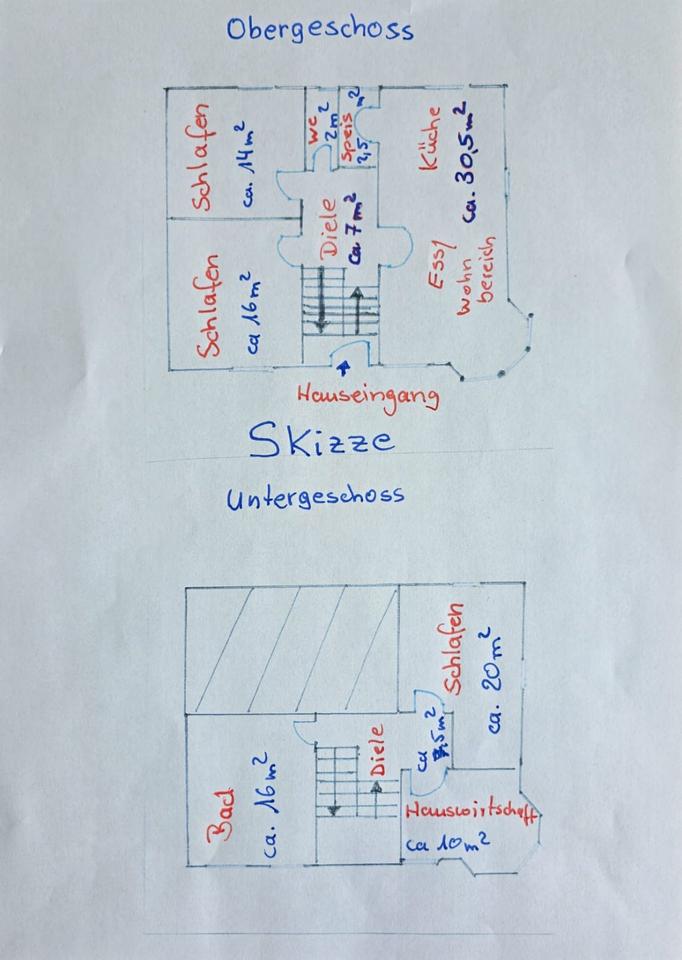 Obergeschoss
Schlafen
ca. 14 m²
WC
2 m²
Speis
2,5 m²
Küche
ca. 30,5 m²
Ess/
wohn
bereich
Diele
ca 7 m²
Schlafen
ca 16 m²
Hauseingang
Skizze
Untergeschoss
Schlafen
ca. 20 m²
Diele
ca
Bad
ca. 16 m²
Hauswirtschaft
ca 10 m²